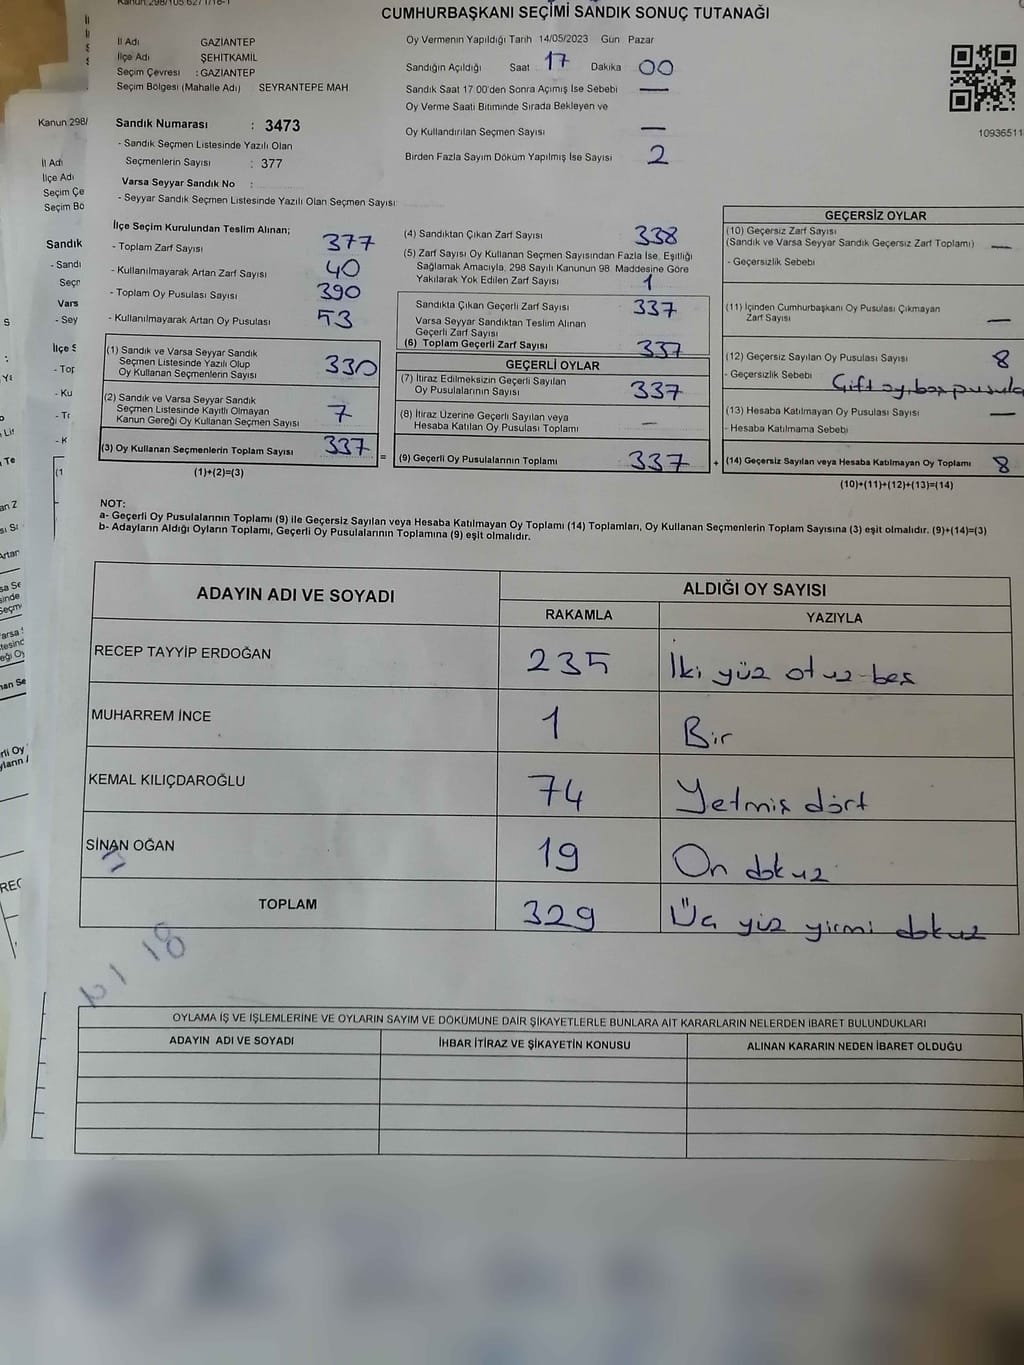 CUMHURBAŞKANI SEÇİMİ SANDIK SONUÇ TUTANAĞI
İl Adı GAZİANTEP
İlçe Adı ŞEHİTKAMİL
Seçim Çevresi : GAZİANTEP
Seçim Bölgesi (Mahalle Adı) SEYRANTEPE MAH.
Sandık Numarası : 3473
- Sandık Seçmen Listesinde Yazılı Olan
Seçmenlerin Sayısı : 377
Varsa Seyyar Sandık No :
- Seyyar Sandık Seçmen Listesinde Yazılı Olan Seçmen Sayısı:
Oy Vermenin Yapıldığı Tarih 14/05/2023 Gün Pazar
Sandığın Açıldığı Saat 17 Dakika 00
Sandık Saat 17.00'den Sonra Açımış İse Sebebi —
Oy Verme Saati Bitiminde Sırada Bekleyen ve
Oy Kullandırılan Seçmen Sayısı —
Birden Fazla Sayım Döküm Yapılmış İse Sayısı 2
10936511
İlçe Seçim Kurulundan Teslim Alınan;
- Toplam Zarf Sayısı 377
- Kullanılmayarak Artan Zarf Sayısı 40
- Toplam Oy Pusulası Sayısı 390
- Kullanılmayarak Artan Oy Pusulası 53
(1) Sandık ve Varsa Seyyar Sandık
Seçmen Listesinde Yazılı Olup
Oy Kullanan Seçmenlerin Sayısı 330
(2) Sandık ve Varsa Seyyar Sandık
Seçmen Listesinde Kayıtlı Olmayan
Kanun Gereği Oy Kullanan Seçmen Sayısı 7
(3) Oy Kullanan Seçmenlerin Toplam Sayısı 337 =
(1)+(2)=(3)
(4) Sandıktan Çıkan Zarf Sayısı 338
(5) Zarf Sayısı Oy Kullanan Seçmen Sayısından Fazla İse, Eşitliği
Sağlamak Amacıyla, 298 Sayılı Kanunun 98. Maddesine Göre
Yakılarak Yok Edilen Zarf Sayısı 1
Sandıkta Çıkan Geçerli Zarf Sayısı 337
Varsa Seyyar Sandıktan Teslim Alınan
Geçerli Zarf Sayısı
(6) Toplam Geçerli Zarf Sayısı 337
GEÇERLİ OYLAR
(7) İtiraz Edilmeksizin Geçerli Sayılan
Oy Pusulalarının Sayısı 337
(8) İtiraz Üzerine Geçerli Sayılan veya
Hesaba Katılan Oy Pusulası Toplamı —
(9) Geçerli Oy Pusulalarının Toplamı 337 +
GEÇERSİZ OYLAR
(10) Geçersiz Zarf Sayısı
(Sandık ve Varsa Seyyar Sandık Geçersiz Zarf Toplamı) —
- Geçersizlik Sebebi
(11) İçinden Cumhurbaşkanı Oy Pusulası Çıkmayan
Zarf Sayısı —
(12) Geçersiz Sayılan Oy Pusulası Sayısı 8
- Geçersizlik Sebebi Çift oy, boş pusula
(13) Hesaba Katılmayan Oy Pusulası Sayısı —
- Hesaba Katılmama Sebebi
(14) Geçersiz Sayılan veya Hesaba Katılmayan Oy Toplamı 8
(10)+(11)+(12)+(13)=(14)
NOT:
a- Geçerli Oy Pusulalarının Toplamı (9) ile Geçersiz Sayılan veya Hesaba Katılmayan Oy Toplamı (14) Toplamları, Oy Kullanan Seçmenlerin Toplam Sayısına (3) eşit olmalıdır. (9)+(14)=(3)
b- Adayların Aldığı Oyların Toplamı, Geçerli Oy Pusulalarının Toplamına (9) eşit olmalıdır.
ADAYIN ADI VE SOYADI ALDIĞI OY SAYISI
RAKAMLA YAZIYLA
RECEP TAYYİP ERDOĞAN 235 İki yüz otuz beş
MUHARREM İNCE 1 Bir
KEMAL KILIÇDAROĞLU 74 Yetmiş dört
SİNAN OĞAN 19 On dokuz
TOPLAM 329 Üç yüz yirmi dokuz
OYLAMA İŞ VE İŞLEMLERİNE VE OYLARIN SAYIM VE DÖKÜMÜNE DAİR ŞİKAYETLERLE BUNLARA AİT KARARLARIN NELERDEN İBARET BULUNDUKLARI
ADAYIN ADI VE SOYADI İHBAR İTİRAZ VE ŞİKAYETİN KONUSU ALINAN KARARIN NEDEN İBARET OLDUĞU
Kanun 298/
İl Adı
İlçe Adı
Seçim Çe
Seçim Bö
Sandık
- Sandı
Seçr
Vars
- Sey